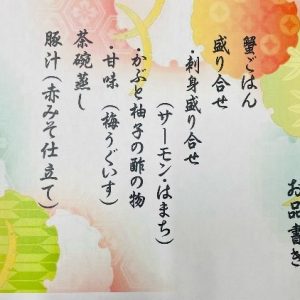 お品書き
蟹ごはん
盛り合せ
・刺身盛り合せ
（サーモン・はまち）
・かぶと柚子の酢の物
・甘味（梅うぐいす）
茶碗蒸し
豚汁（赤みそ仕立て）